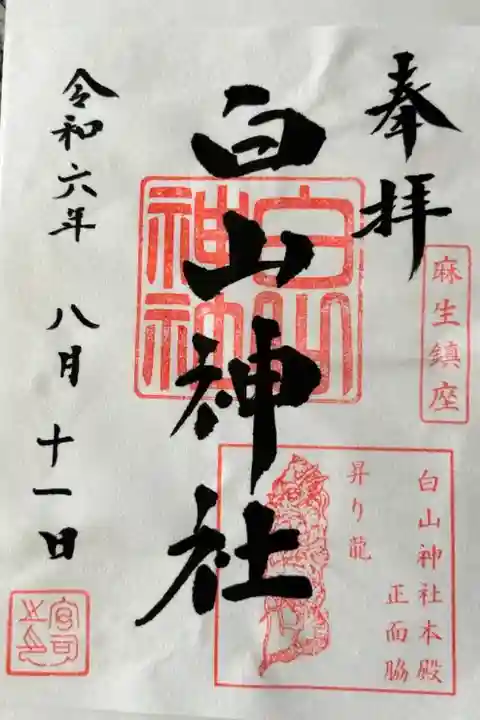 奉拝
麻生鎮座
白山神社本殿
正面脇
昇り龍
白山神社
白山神社
令和六年 八月 十一日
宮司之印